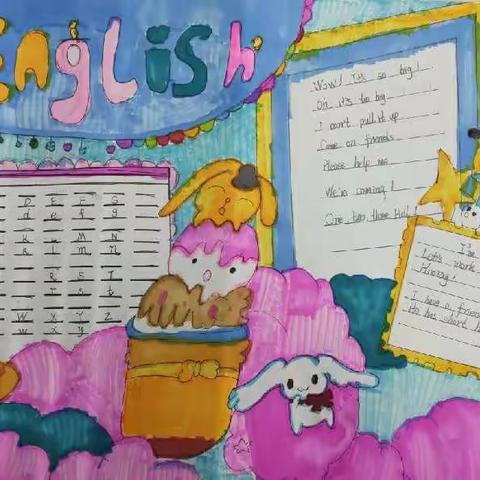 English
D E F G
d e f g
K L M N
k l m n
R S T
r s t
W X Y Z
w x y
Wow! It's so big!
Oh it's too big
I can't pull it up
Come on friends
Please help me
We're coming!
One two three
I'm
Let's work
Hurray!
I have a friend
He has short